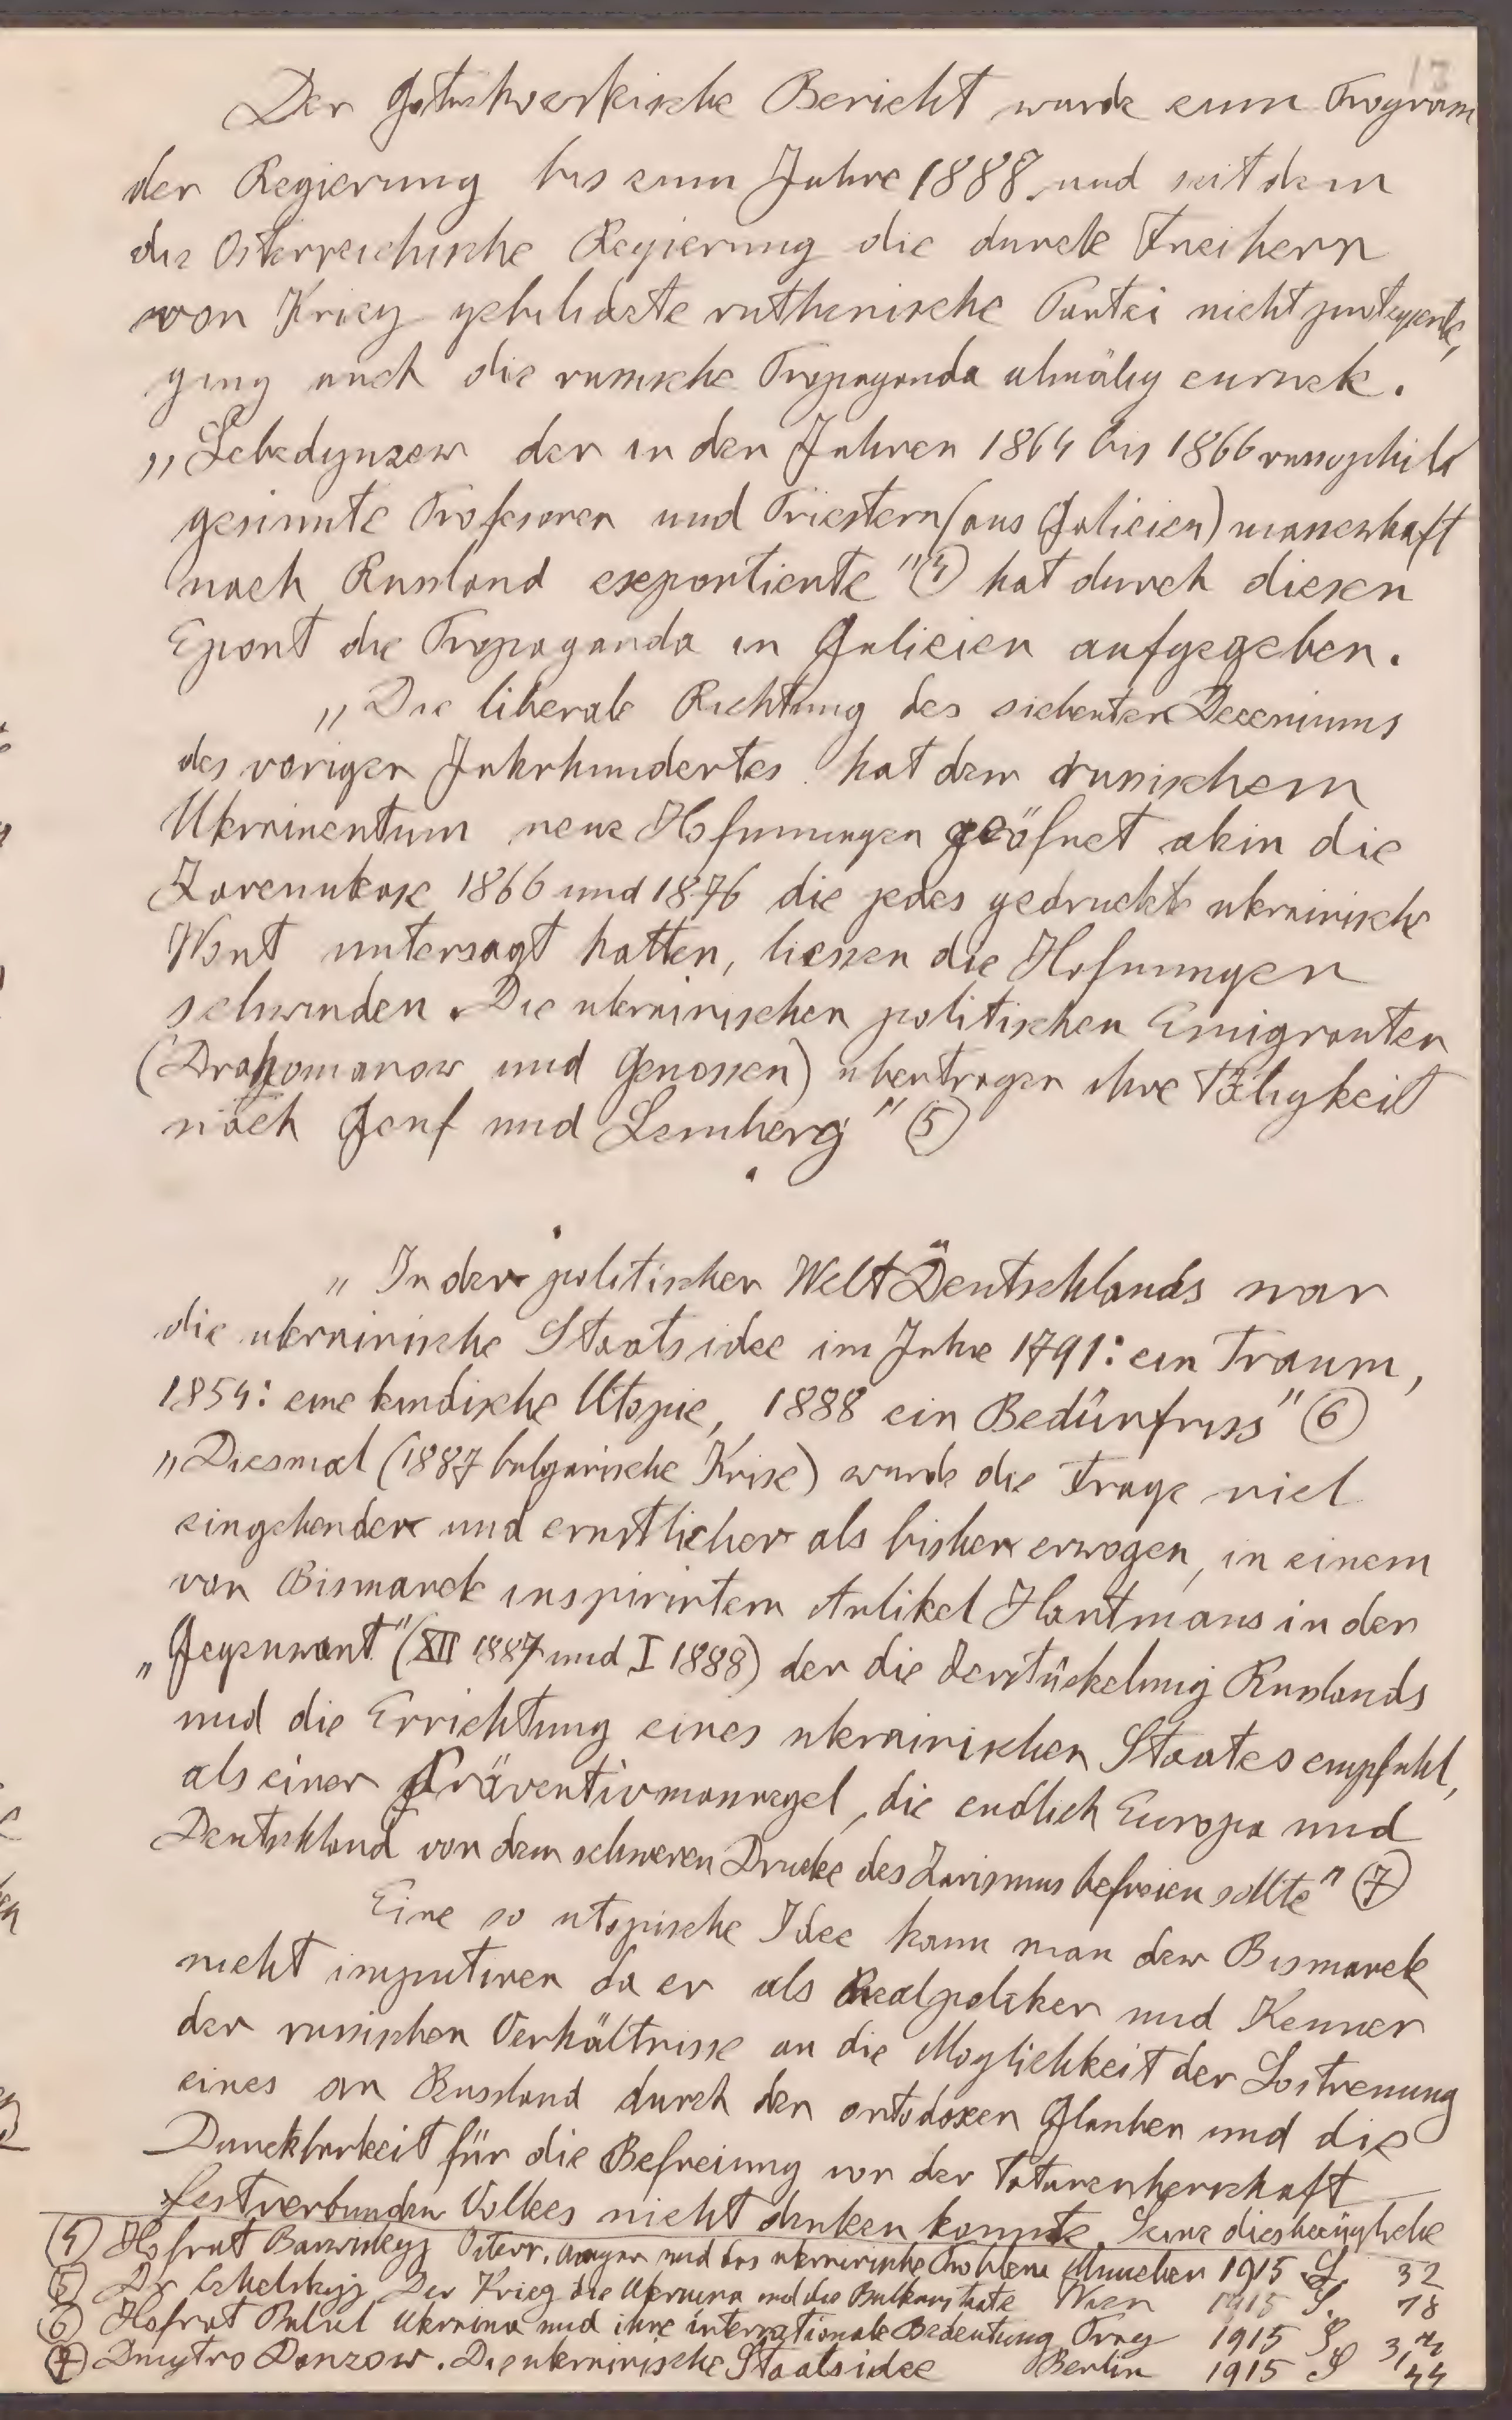 13
Der Gotuchowskische Bericht wurde zum Program
der Regierung bis zum Jahre 1888, und seit dem
die Österreichische Regierung die durch Freihern
von Krieg gebildete ruthenische Partei nicht protegierte,
ging auch die russische Propaganda almälig zurück.
„Lebedynzew der in den Jahren 1864 bis 1866 russophile
gesinnte Profesoren und Priestern (aus Galizien) massenhaft
nach Russland exportierte" (4) hat durch diesen
Export die Propaganda in Galizien aufgegeben.
„Die liberale Richtung des siebenten Dezeniums
des vorigen Jahrhundertes hat dem russischem
Ukrainentum neue Hofnungen geöfnet allein die
Zarenukase 1866 und 1876 die jedes gedruckte ukrainische
Wort untersagt hatten, liessen die Hofnungen
schwinden. Die ukrainischen politischen Emigranten
(Drahomanow und Genossen) übertragen ihre Tätigkeit
nach Genf und Lemberg" (5)
„In der politischen Welt Deutschlands war
die ukrainische Staatsidee im Jahre 1791: ein Traum,
1854: eine kindische Utopie, 1888 ein Bedürfniss" (6)
„Diesmal (1887 bulgarische Krise) wurde die Frage viel
eingehender und ernstlicher als bisher erwogen, in einem
von Bismarck inspirirtem Artikel Hartmans in der
„Gegenwart" (XII 1887 und I 1888) der die Zerstückelung Russlands
und die Errichtung eines ukrainischen Staates empfahl,
als einer Präventivmassregel, die endlich Europa und
Deutschland von dem schweren Drucke des Zarismus befreien sollte" (7)
Eine so utopische Idee kann man dem Bismarck
nicht imputiren da er als Realpoliker und Kenner
der russischen Verhältnisse an die Möglichkeit der Lostrenung
eines an Russland durch den ortodoxen Glauben und die
Danckbarkeit für die Befreiung von der Tatarenherschaft
festverbunden Volkes nicht denken konnte. Seine diesbezügliche
(4) Hofrat Barwinskyj Österr. Ungarn und das ukrainische Problem München 1915 S. 32
(5) Dr Cehelskyj Der Krieg die Ukraina und die Balkanstaate Wien 1915 S. 18
(6) Hofrat Ukraina und ihre internationale Bedeutung Prag 1915 S. 3,4
(7) Dmytro Donzow. Die ukrainische Staatsidee Berlin 1915 S 44